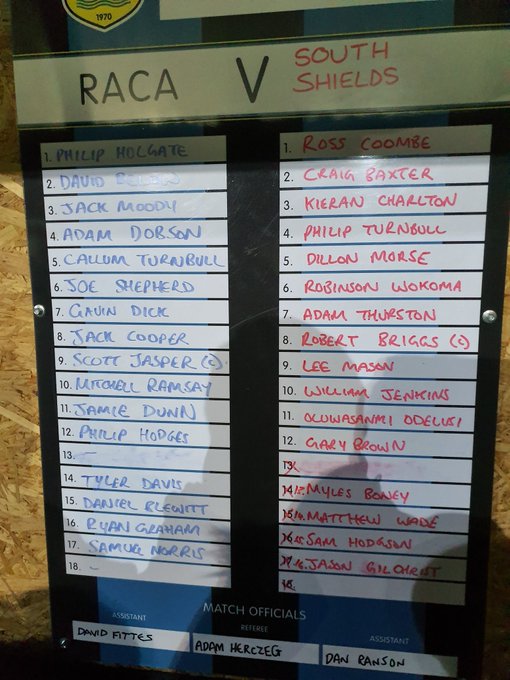 1970
RACA V SOUTH SHIELDS
1. PHILIP HOLGATE
2. DAVID
3. JACK MOODY
4. ADAM DOBSON
5. CALLUM TURNBULL
6. JOE SHEPHERD
7. GAVIN DICK
8. JACK COOPER
9. SCOTT JASPER (C)
10. MITCHELL RAMSAY
11. JAMIE DUNN
12. PHILIP HODGES
13. -
14. TYLER DAVIS
15. DANIEL BLEWITT
16. RYAN GRAHAM
17. SAMUEL NORRIS
18. -
1. ROSS COOMBE
2. CRAIG BAXTER
3. KIERAN CHARLTON
4. PHILIP TURNBULL
5. DILLON MORSE
6. ROBINSON WOKOMA
7. ADAM THURSTON
8. ROBERT BRIGGS (C)
9. LEE MASON
10. WILLIAM JENKINS
11. OLUWASANMI ODELUSI
12. GARY BROWN
13.
14. MYLES BONEY
15. MATTHEW WADE
16. SAM HODGSON
17. JASON GILCHRIST
18.
MATCH OFFICIALS
ASSISTANT
DAVID FITTES
REFEREE
ADAM HERCZEG
ASSISTANT
DAN RANSON